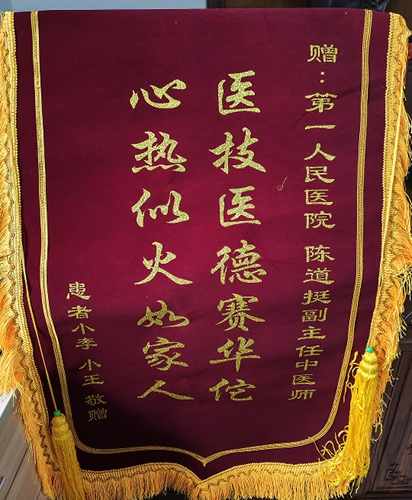 赠：第一人民医院 陈道挺副主任中医师
医技医德赛华佗
心热似火如家人
患者小李 小王 敬赠